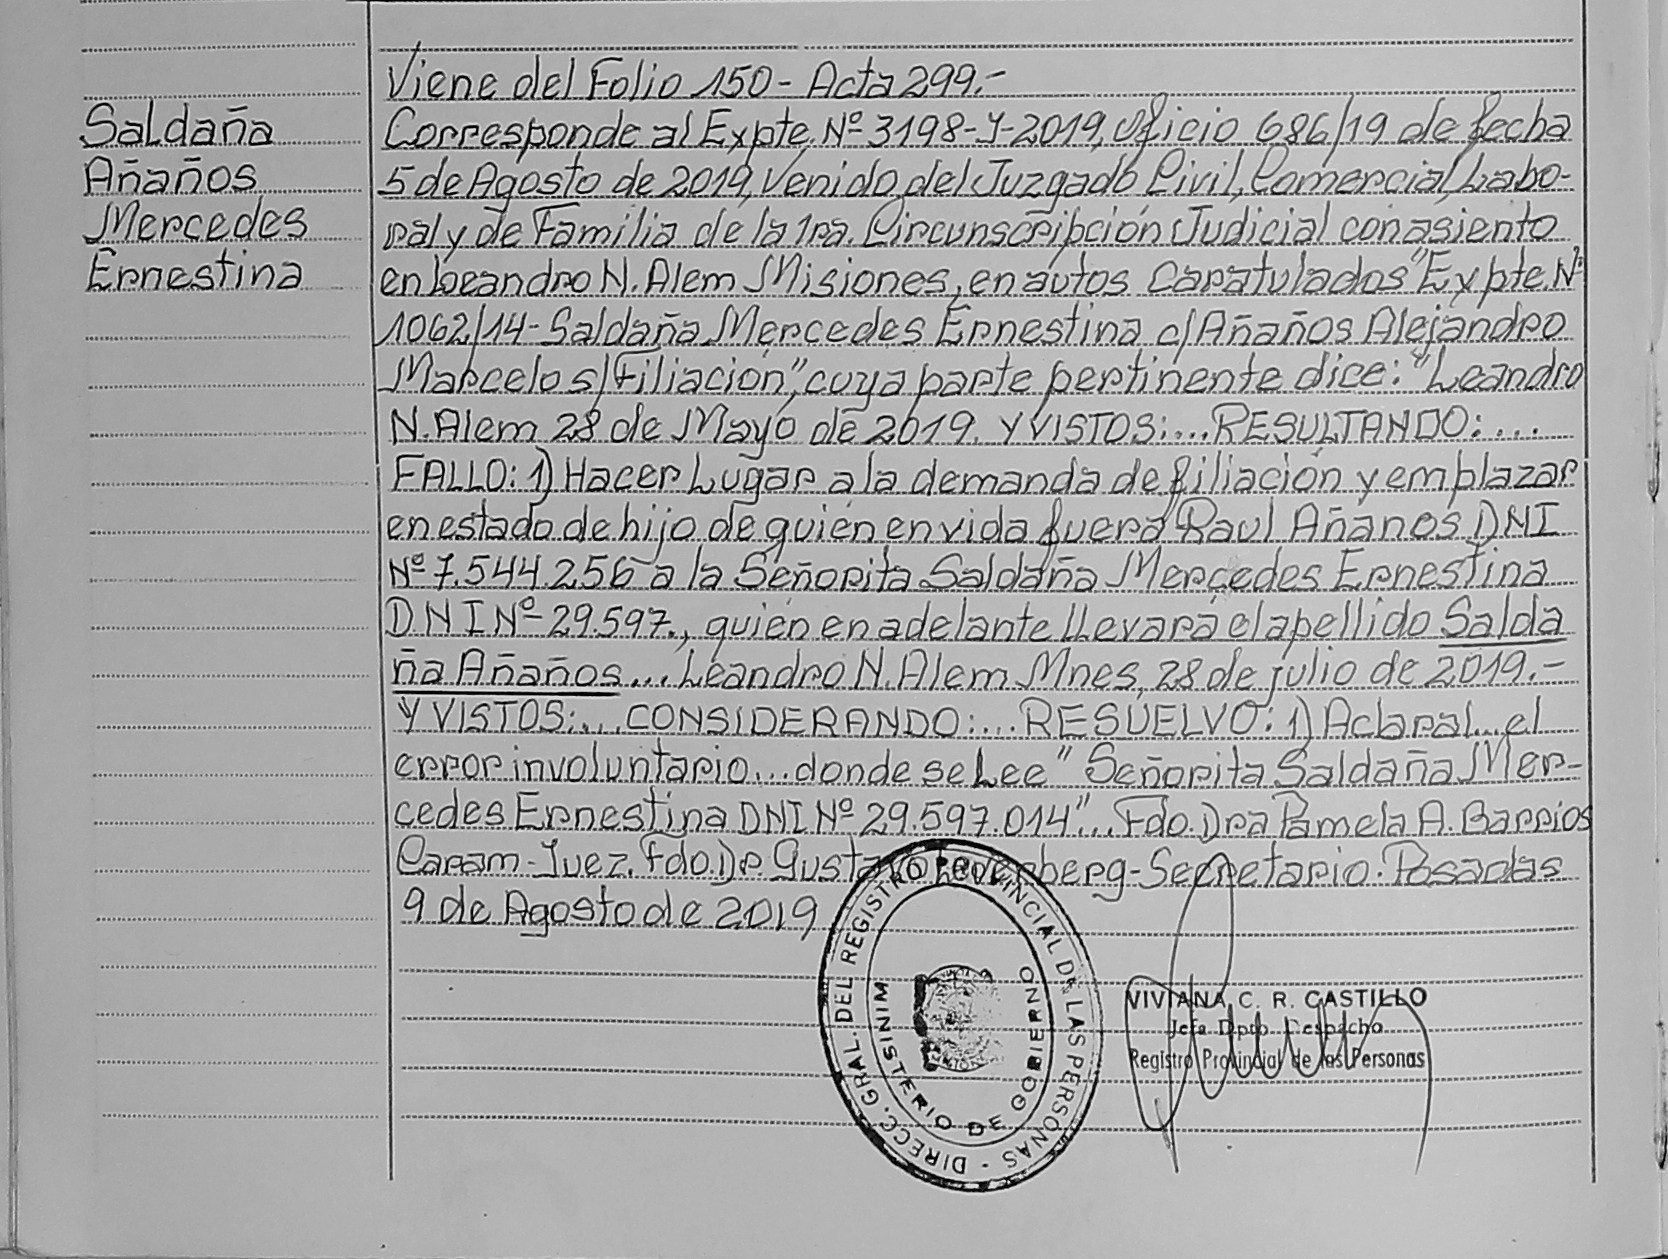 Viene del Folio 150 - Acta 299.-
Saldaña
Añaños
Mercedes
Ernestina
Corresponde al Expte. Nº 3198-Y-2019, Oficio 686/19 de fecha
5 de Agosto de 2019, Venido del Juzgado Civil, Comercial, Labo-
ral y de Familia de la 1ra. Circunscripción Judicial con asiento
en Leandro N. Alem Misiones, en autos Caratulados "Expte. Nº
1062/14 - Saldaña Mercedes Ernestina c/ Añaños Alejandro
Marcelo s/ Filiación", cuya parte pertinente dice: "Leandro
N. Alem 28 de Mayo de 2019. Y VISTOS:... RESULTANDO:...
FALLO: 1) Hacer Lugar a la demanda de filiación y emplazar
en estado de hijo de quién en vida fuera Raul Añaños DNI
Nº 7.544.256 a la Señorita Saldaña Mercedes Ernestina
DNI Nº 29.597., quién en adelante llevará el apellido Salda
ña Añaños... Leandro N. Alem Mnes, 28 de julio de 2019.-
Y VISTOS:... CONSIDERANDO:... RESUELVO: 1) Aclarar... el
error involuntario... donde se Lee "Señorita Saldaña Mer-
cedes Ernestina DNI Nº 29.597.014"... Fdo. Dra Pamela A. Barrios
Caram - Juez. Fdo. Dr. Gustavo - Secretario. Posadas
9 de Agosto de 2019
DIRECC. GRAL. DEL REGISTRO PROVINCIAL DE LAS PERSONAS -
MINISTERIO DE GOBIERNO
VIVIANA C. R. CASTILLO
Jefa Dpto Despacho
Registro Provincial de las Personas